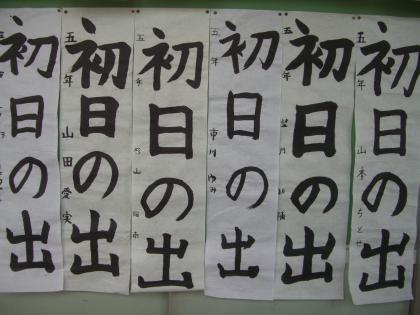 初日の出
五年 山本ちとせ
初日の出
五年
初日の出
五年 市川ゆみ
初日の出
五年
初日の出
五年 山田愛実
初日の出